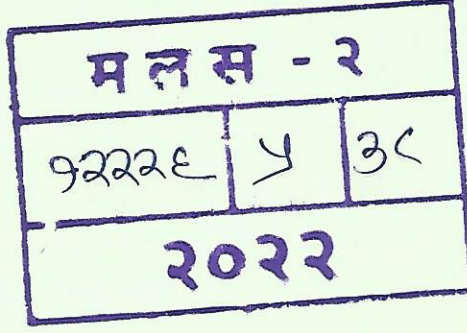 मलस - २
१२२२६ ५ ३८
२०२२